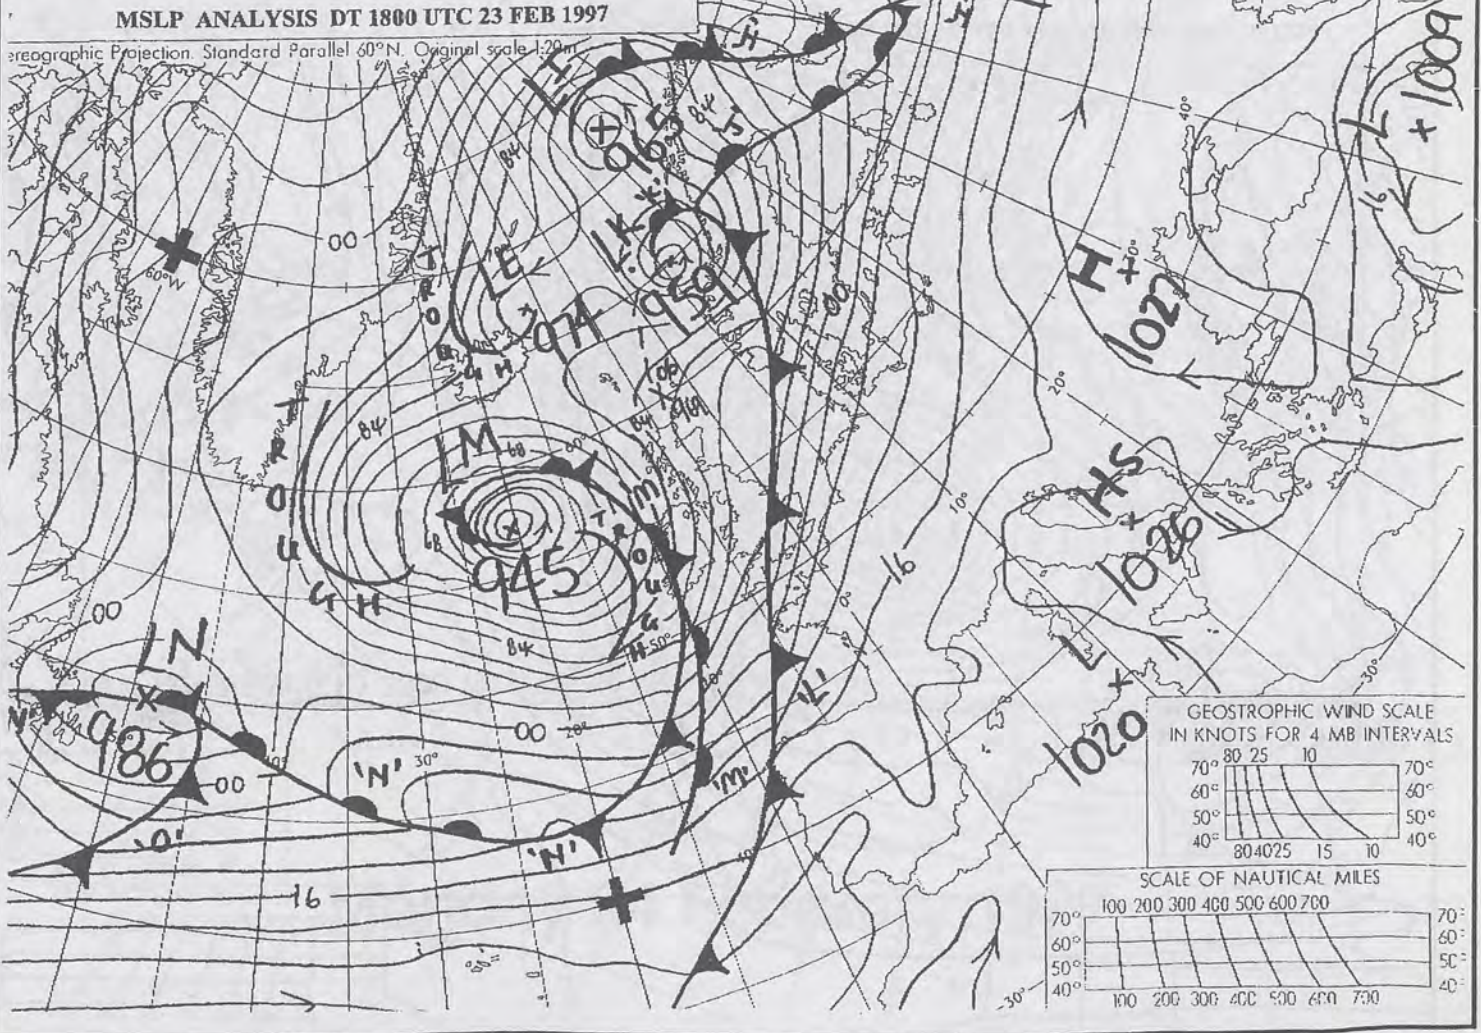 MSLP ANALYSIS DT 1800 UTC 23 FEB 1997
ereographic Projection. Standard Parallel 60°N. Original scale 1:20m
LI
965
84
'H'
'J'
40°
L
1009
16
84
60°W
00
TROUGH
L'E'
974
LK
'K'
959
00
H
1027
20°
08
969
84
TROUGH
84
LM
68
60°
68
945
'M'
TROUGH
84
50°
10°
16
HS
1026
0°
00
LN
986
00
40°
'N'
30°
00
20°
'L'
'M'
'O'
'N'
40°
16
L
1020
30°
30°
GEOSTROPHIC WIND SCALE
IN KNOTS FOR 4 MB INTERVALS
80 25 10
70° 70°
60° 60°
50° 50°
40° 40°
80 40 25 15 10
SCALE OF NAUTICAL MILES
100 200 300 400 500 600 700
70° 70°
60° 60°
50° 50°
40° 40°
100 200 300 400 500 600 700